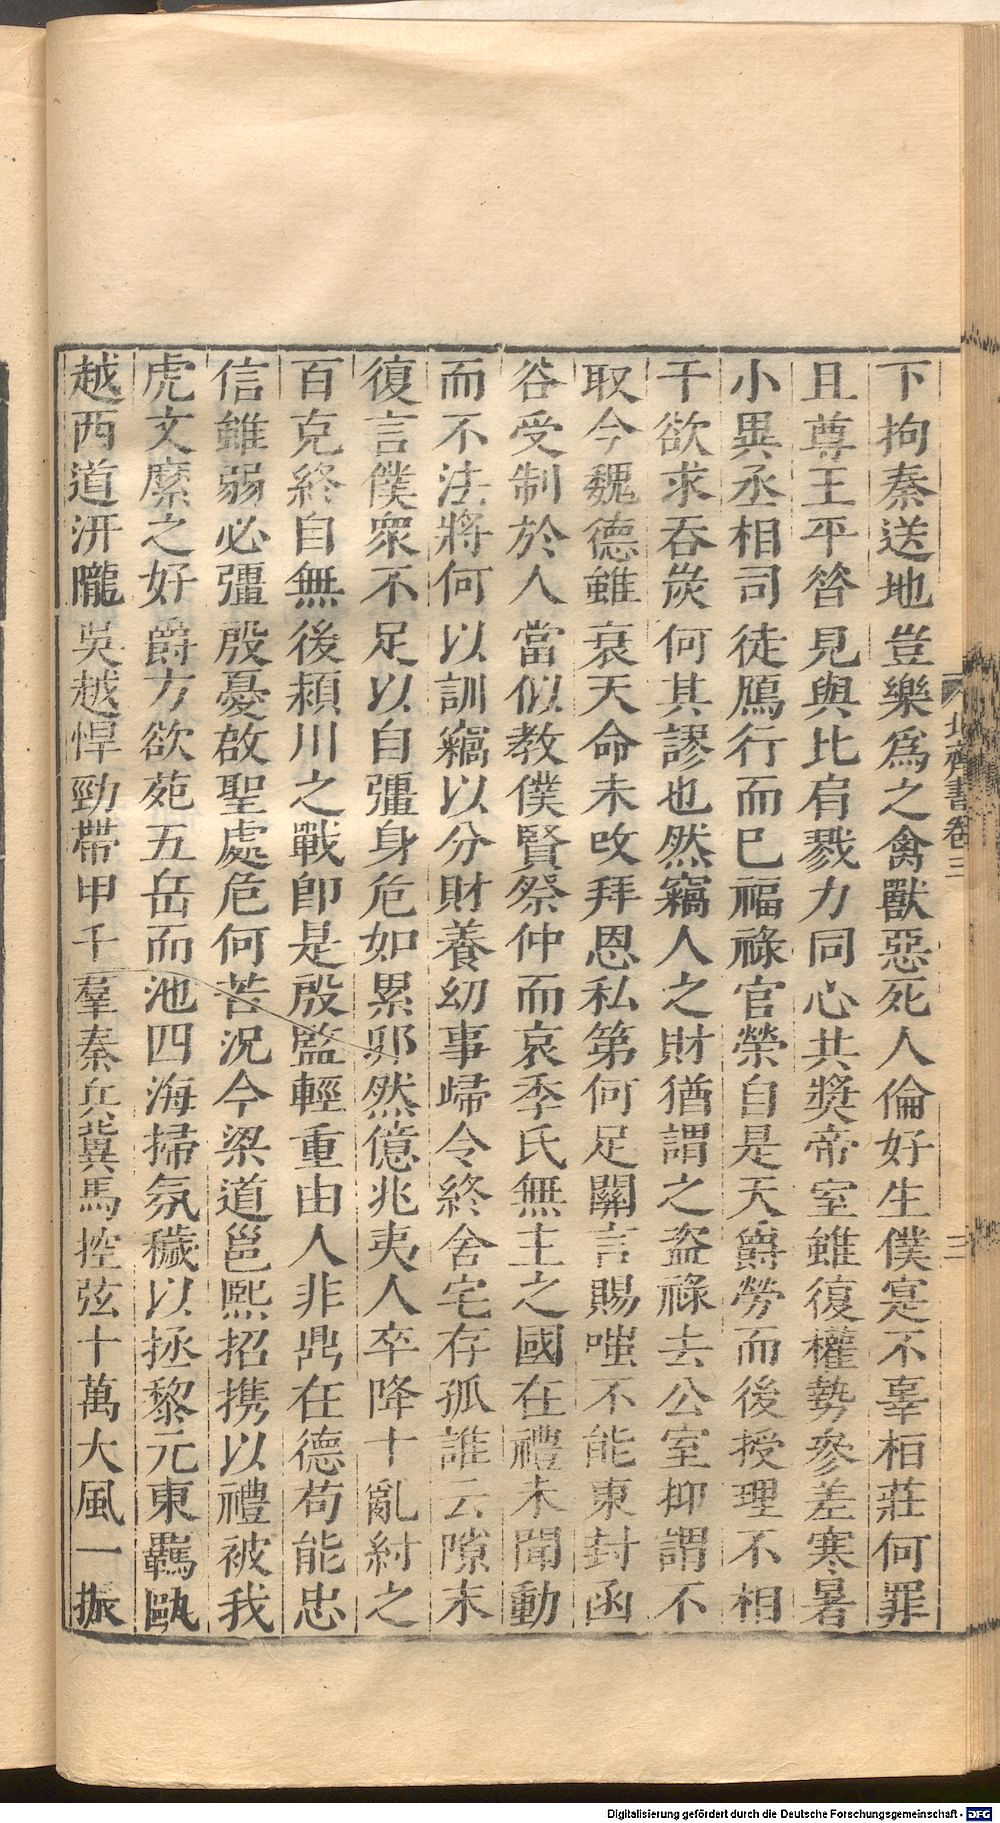 下拘秦送地豈樂爲之禽獸惡死人倫好生僕寔不辜桓莊何罪
且尊王平昝見與比肩戮力同心共獎帝室雖復權勢參差寒暑
小異丞相司徒鴈行而已福祿官榮自是天爵勞而後授理不相
干欲求吞炭何其謬也然竊人之財猶謂之盜祿去公室抑謂不
取今魏德雖衰天命未改拜恩私第何足關言賜嗤不能東封函
谷受制於人當似教僕賢祭仲而哀季氏無主之國在禮未聞動
而不法將何以訓竊以分財養幼事歸令終舍宅存孤誰云隙末
復言僕衆不足以自彊身危如累卵然億兆夷人卒降十亂紂之
百克終自無後潁川之戰卽是殷監輕重由人非鼎在德苟能忠
信雖弱必彊殷憂啟聖處危何苦況今梁道邕熙招携以禮被我
虎文縻之好爵方欲苑五岳而池四海掃氛穢以拯黎元東羈甌
越西道汧隴吳越悍勁帶甲千羣秦兵冀馬控弦十萬大風一振
北齊書卷三
三
Digitalisierung gefördert durch die Deutsche Forschungsgemeinschaft - DFG